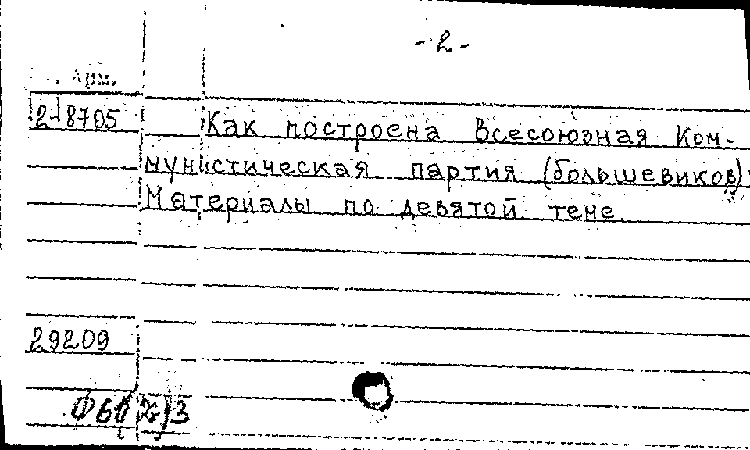 - 2 -
Арм.
2-8705
Как построена Всесоюзная Ком-
мунистическая партия (большевиков):
Материалы по девятой теме.
29209